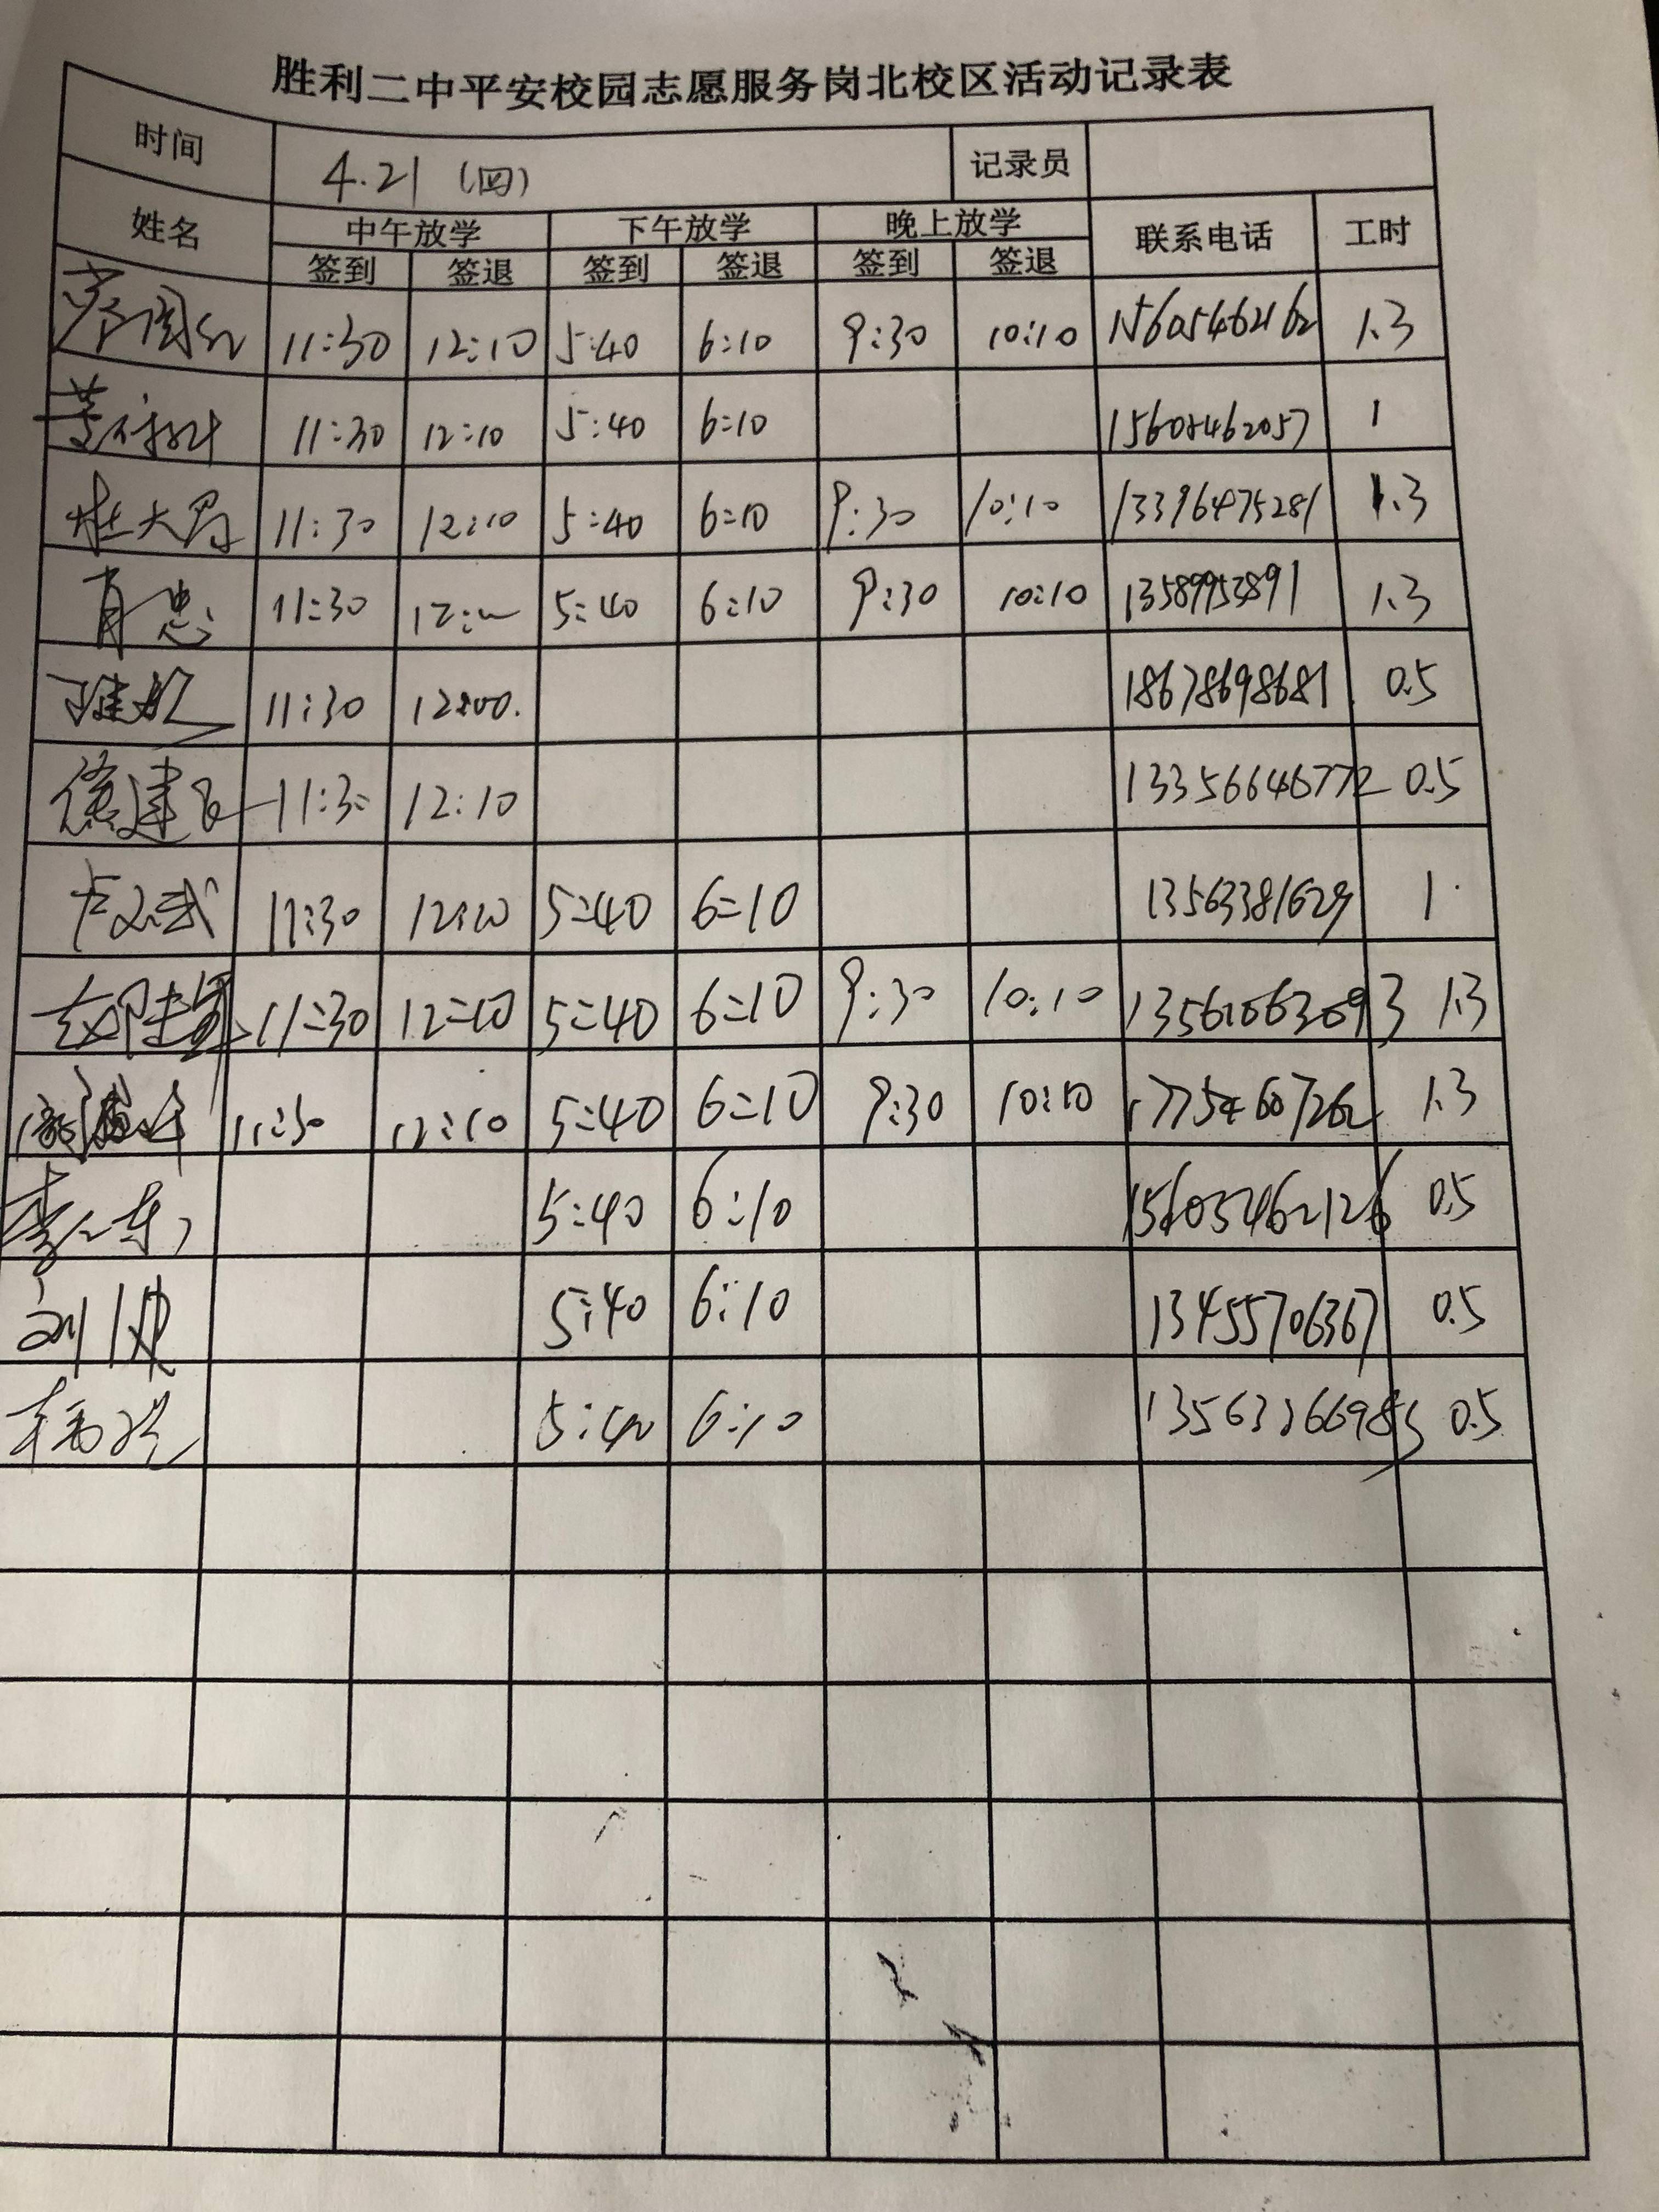 胜利二中平安校园志愿服务岗北校区活动记录表
时间 4.21 (四) 记录员
姓名 中午放学 下午放学 晚上放学 联系电话 工时
签到 签退 签到 签退 签到 签退
11:30 12:10 5:40 6:10 9:30 10:10 15605462162 1.3
11:30 12:10 5:40 6:10 15605462057 1
11:30 12:10 5:40 6:10 9:30 10:10 13396475281 1.3
肖忠 11:30 5:40 6:10 9:30 10:10 13589953891 1.3
11:30 12:00. 18678698681 0.5
徐建飞 11:30 12:10 13356646772 0.5
卢文武 11:30 12:10 5:40 6:10 13563381629 1
赵胜军 11:30 12:10 5:40 6:10 9:30 10:10 13561063693 1.3
11:30 12:10 5:40 6:10 9:30 10:10 17754607262 1.3
李仁东 5:40 6:10 15605462126 0.5
刘波 5:40 6:10 13455706367 0.5
5:40 6:10 13563266983 0.5